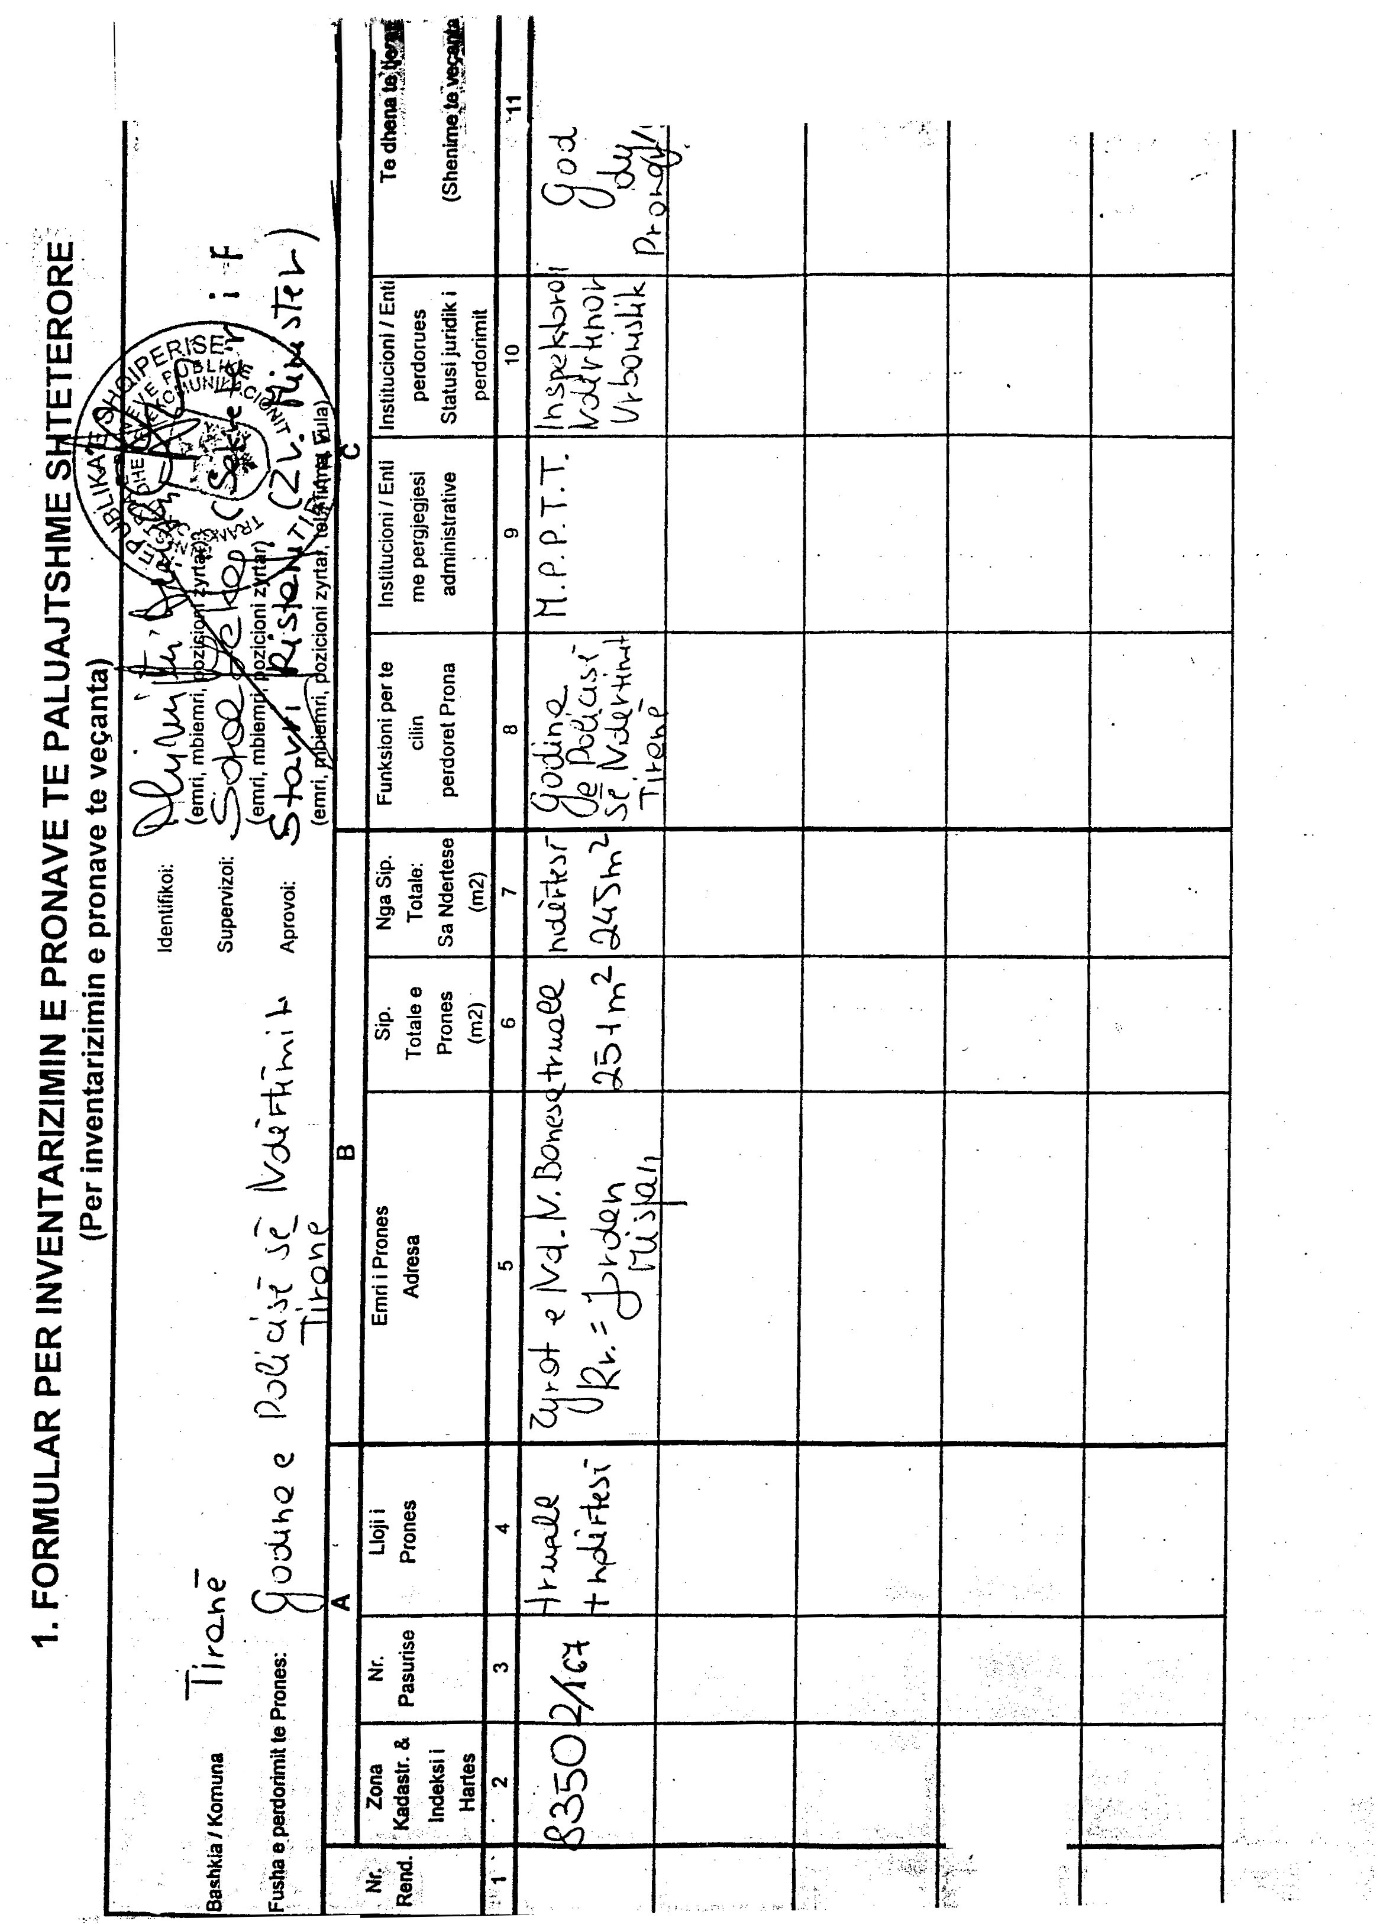 1. FORMULAR PER INVENTARIZIMIN E PRONAVE TE PALUAJTSHME SHTETERORE
(Per inventarizimin e pronave te veçanta)
Bashkia / Komuna Tiranë
Fusha e perdorimit te Prones: Godina e Policisë së Ndërtimit
Tiranë
Identifikoi:
(emri, mbiemri, pozicioni zyrtar)
Supervizoi:
(emri, mbiemri, pozicioni zyrtar)
Aprovoi: Stavri Ristani (Zv. Minister)
(emri, mbiemri, pozicioni zyrtar, tel, firma, vula)
REPUBLIKA E SHQIPERISE
A B C
Nr. Rend.
Zona Kadastr. & Indeksi i Hartes
Nr. Pasurise
Lloji i Prones
Emri i Prones Adresa
Sip. Totale e Prones (m2)
Nga Sip. Totale: Sa Ndertese (m2)
Funksioni per te cilin perdoret Prona
Institucioni / Enti me pergjegjesi administrative
Institucioni / Enti perdorues Statusi juridik i perdorimit
Te dhena te tjera (Shenime te veçanta
1 2 3 4 5 6 7 8 9 10 11
8350 2/167
truall
+ndërtesi
Zyrat e Nd. N. Banesa
Rr. = Jordan
Misja
truall
251m2
ndërtesi
245m2
Godina
e Policisë
së Ndërtimit
Tiranë
M.P.P.T.T.
Ndërtimor
Urbanistik
God
dy